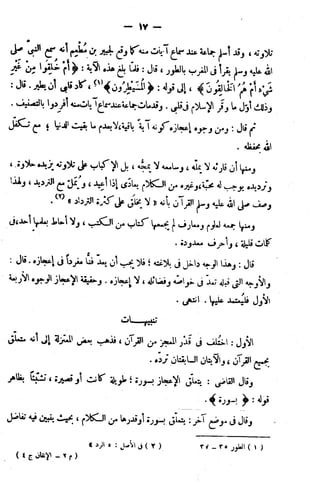 — ١٧ —
تلاوته ، وقد أسلم جماعة عند سماع آيات منه كما وقع لجبير بن مُطْعِم أنه سمع النبيّ صلى
الله عليه وسلم يقرأ فى المغرب بالطور ، قال : فلمّا بلغ هذه الآية : ﴿ أَمْ خُلِقُوا مِنْ غَيْرِ
شَىْءٍ أَمْ هُمُ الْخَالِقُونَ ﴾ ، إلى قوله : ﴿ الْمُسَيْطِرُونَ ﴾(١) ، كاد قلبى أن يطير . قال :
وذلك أوّل ما وقَر الإسلام فى قلبى . وقد مات جماعة عند سماع آيات منه أفردوا بالتصنيف .
ثم قال : ومن وجوه إعجازه كونه آيةً باقية، لا يعدم ما بقيت الدنيا ؛ مع تكفّل
الله بحفظه .
ومنها أن قارئه لا يملّه ، وسامعه لا يمجّه ، بل الإكباب على تلاوته يزيده حلاوة ،
وترديده يوجب له محبّة، وغيره من الكلام يعادَى إذا أعيد ، ويُمَلّ مع الترديد ، ولهذا
وصف صلى الله عليه وسلم القرآن بأنه « لا يخلق على كثرة الترداد »(٢) .
ومنها جمعه لعلوم ومعارف لم يجمعها كتاب من الكتب ، ولا أحاط بعلمها أحد، فى
كلمات قليلة ، وأحرف معدودة .
قال : وهذا الوجه داخل فى بلاغته ؛ فلا يجب أن يعدّ فنًّا مفرداً فى إعجازه . قال :
والأوجه التى قبله تعدّ فى خواصّه وفضائله ، لا إعجازه . وحقيقة الإعجاز الوجوه الأربعة
الأول فليُعتمد عليها . انتهى .
تنبيهــات
الأول : اختُلف فى قدْر المعجز من القرآن ، فذهب بعض المعتزلة إلى أنه متعلّق
بجميع القرآن ، والآيتان السابقتان تردّه .
وقال القاضى : يتعلّق الإعجاز بسورة ؛ طويلة كانت أو قصيرة ، تشبّثاً بظاهر
قوله : ﴿ بسورة ﴾ .
وقال فى موضع آخر : يتعلّق بسورة أو قدرها من الكلام ، بحيث يتبين فيه تفاضل
(١) الطور ٣٥ – ٣٧ (٢) فى الأصل : « الرد »
(م ٢ – الإتقان ج ٤)